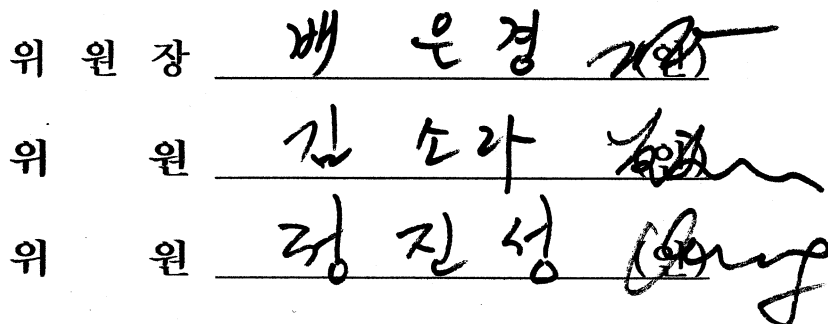 위 원 장 배 은 경 (인)
위 원 김 소 라 (인)
위 원 정 진 성 (인)